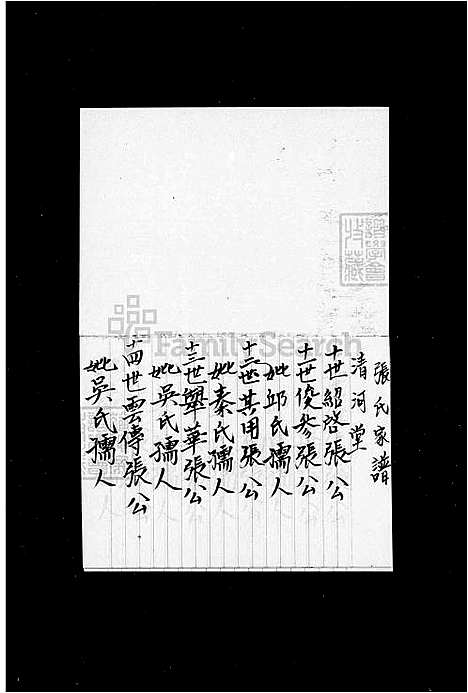 張氏家譜
清河堂
十世紹啓張公
十一世俊參張公
妣邱氏孺人
十二世其用張公
妣秦氏孺人
十三世舉華張公
妣吳氏孺人
十四世雲傳張公
妣吳氏孺人
FamilySearch
譜學會
收藏